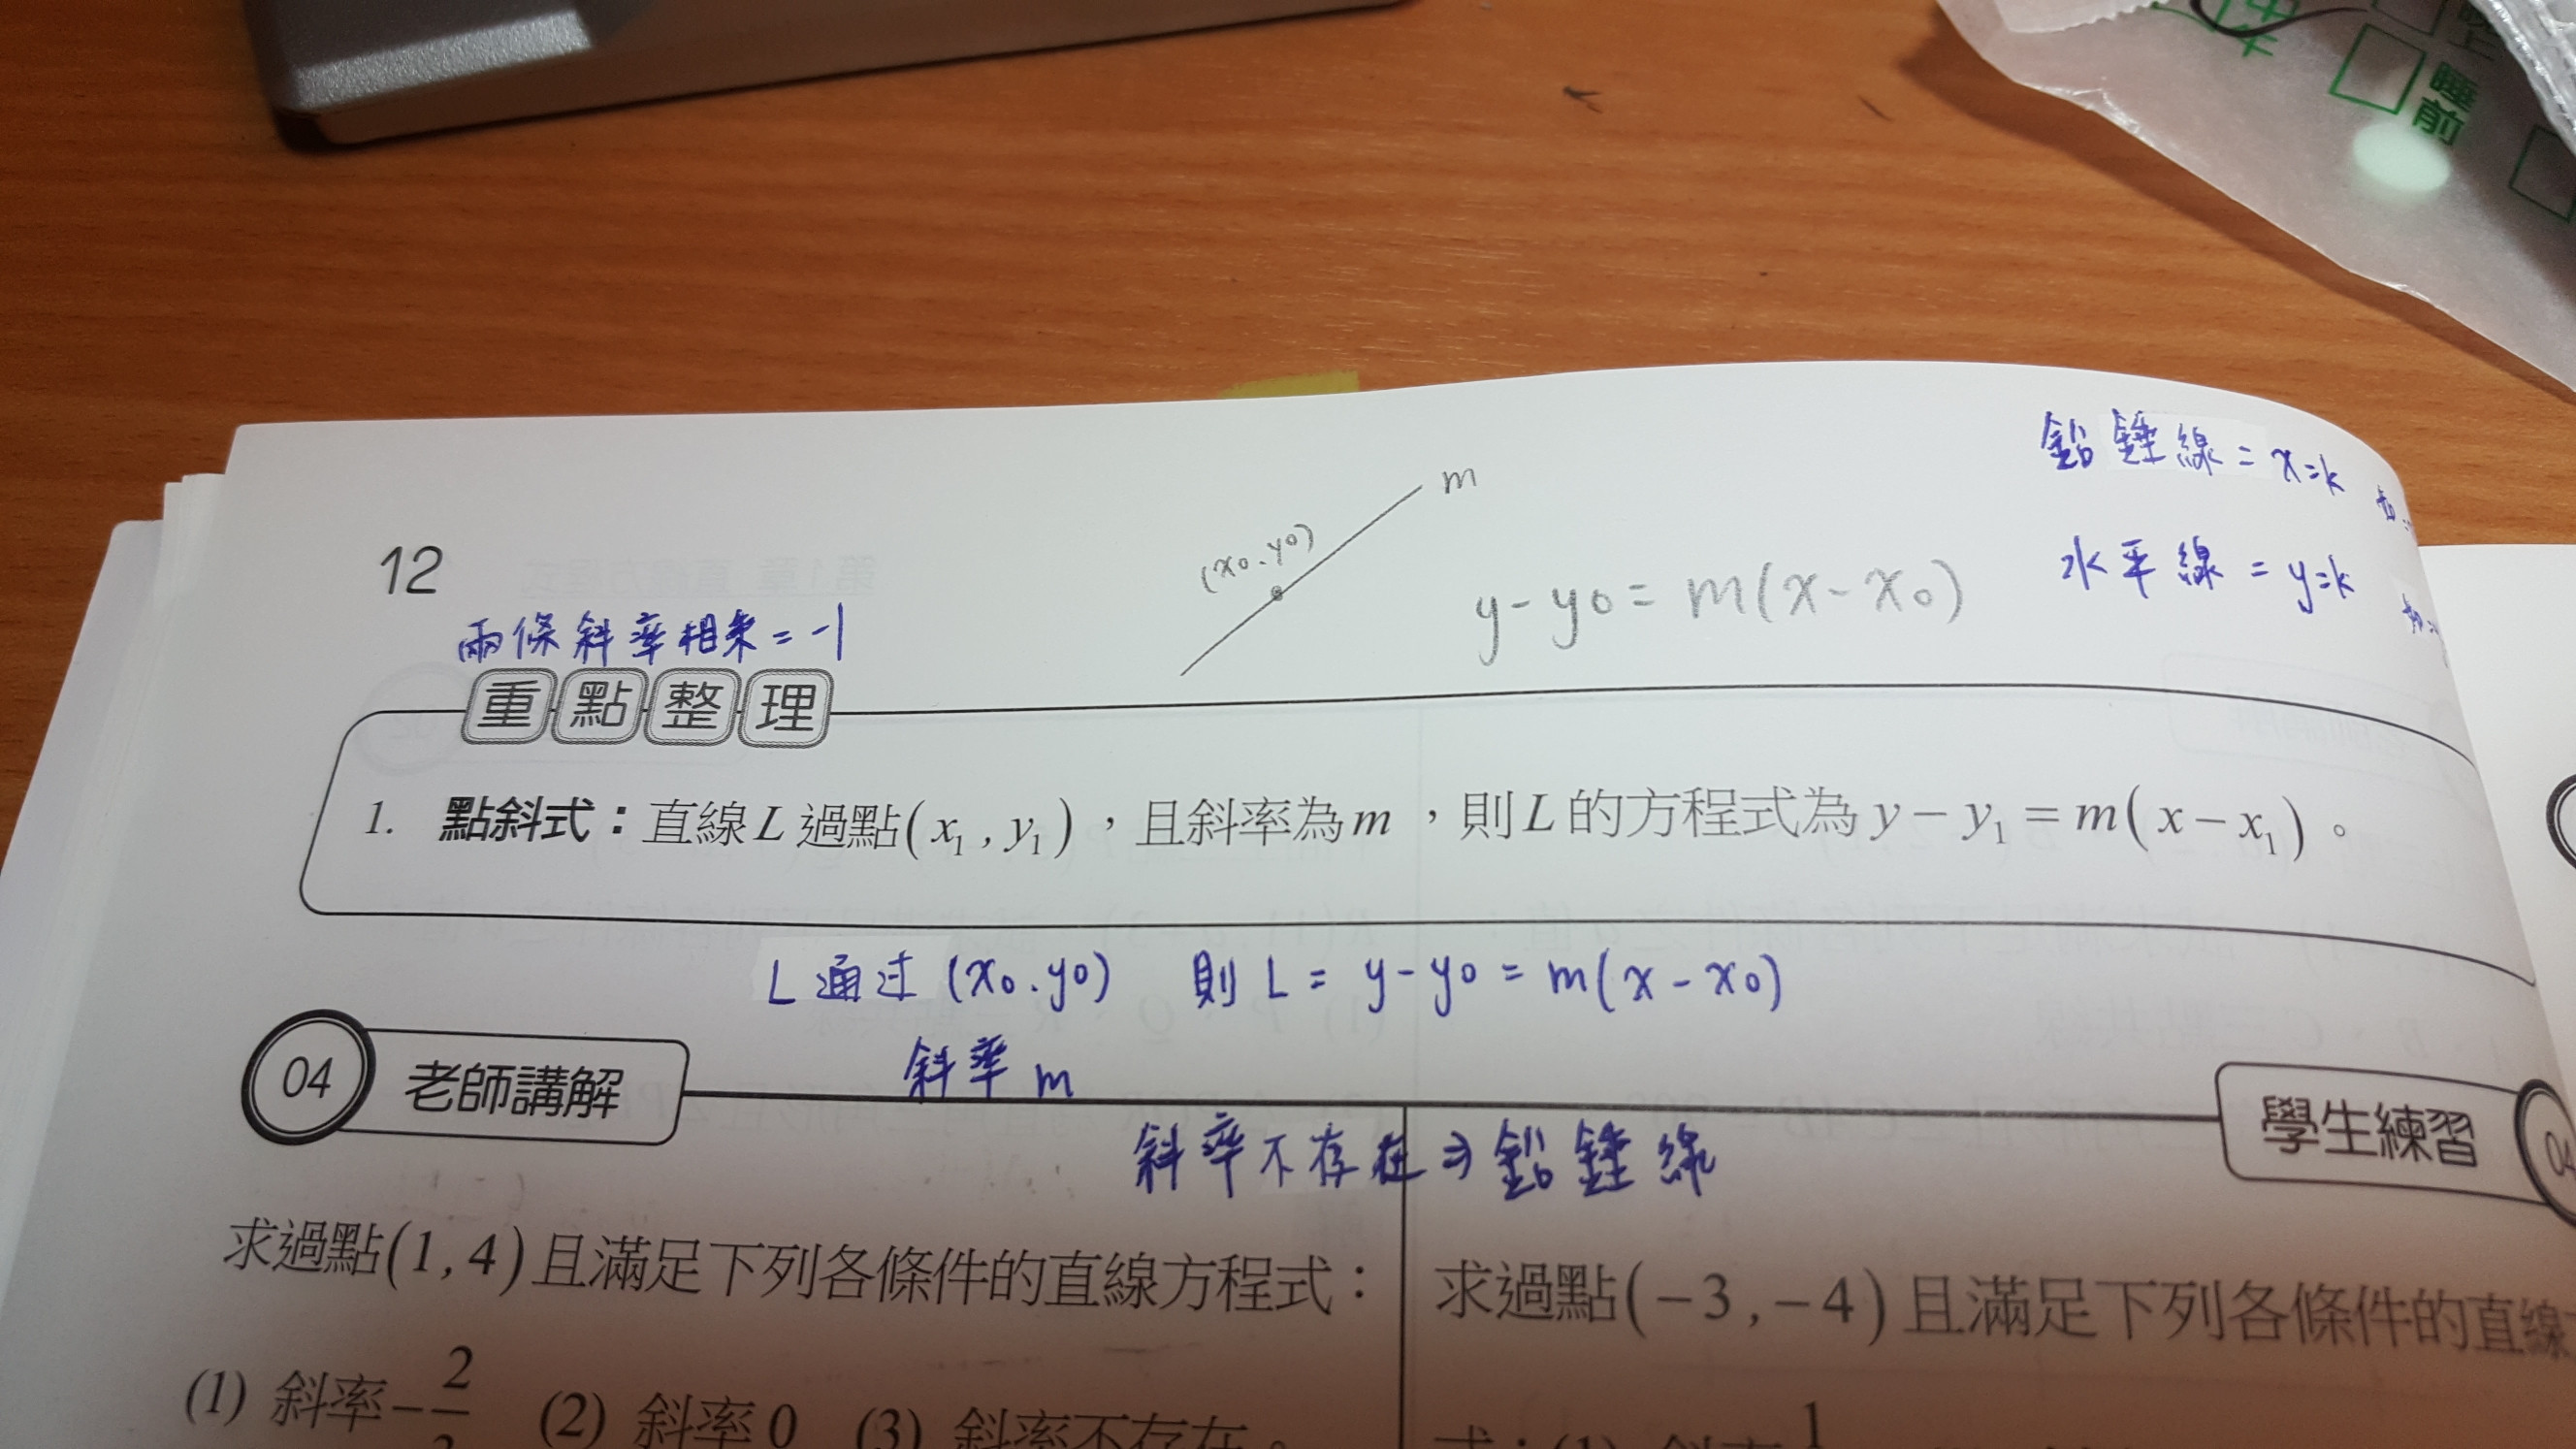 睡前
鉛錘線=x=k
m
(x0.y0)
12
y-y0=m(x-x0)
水平線=y=k
兩條斜率相乘=-1
重點整理
1. 點斜式：直線L過點(x₁,y₁)，且斜率為m，則L的方程式為y-y₁=m(x-x₁)。
L通过(x0.y0) 則L=y-y0=m(x-x0)
斜率m
04 老師講解
學生練習 04
斜率不存在⇒鉛錘線
求過點(1,4)且滿足下列各條件的直線方程式：
(1) 斜率-2 (2) 斜率0 (3) 斜率不存在。
求過點(-3,-4)且滿足下列各條件的直線
(1) 斜率 1